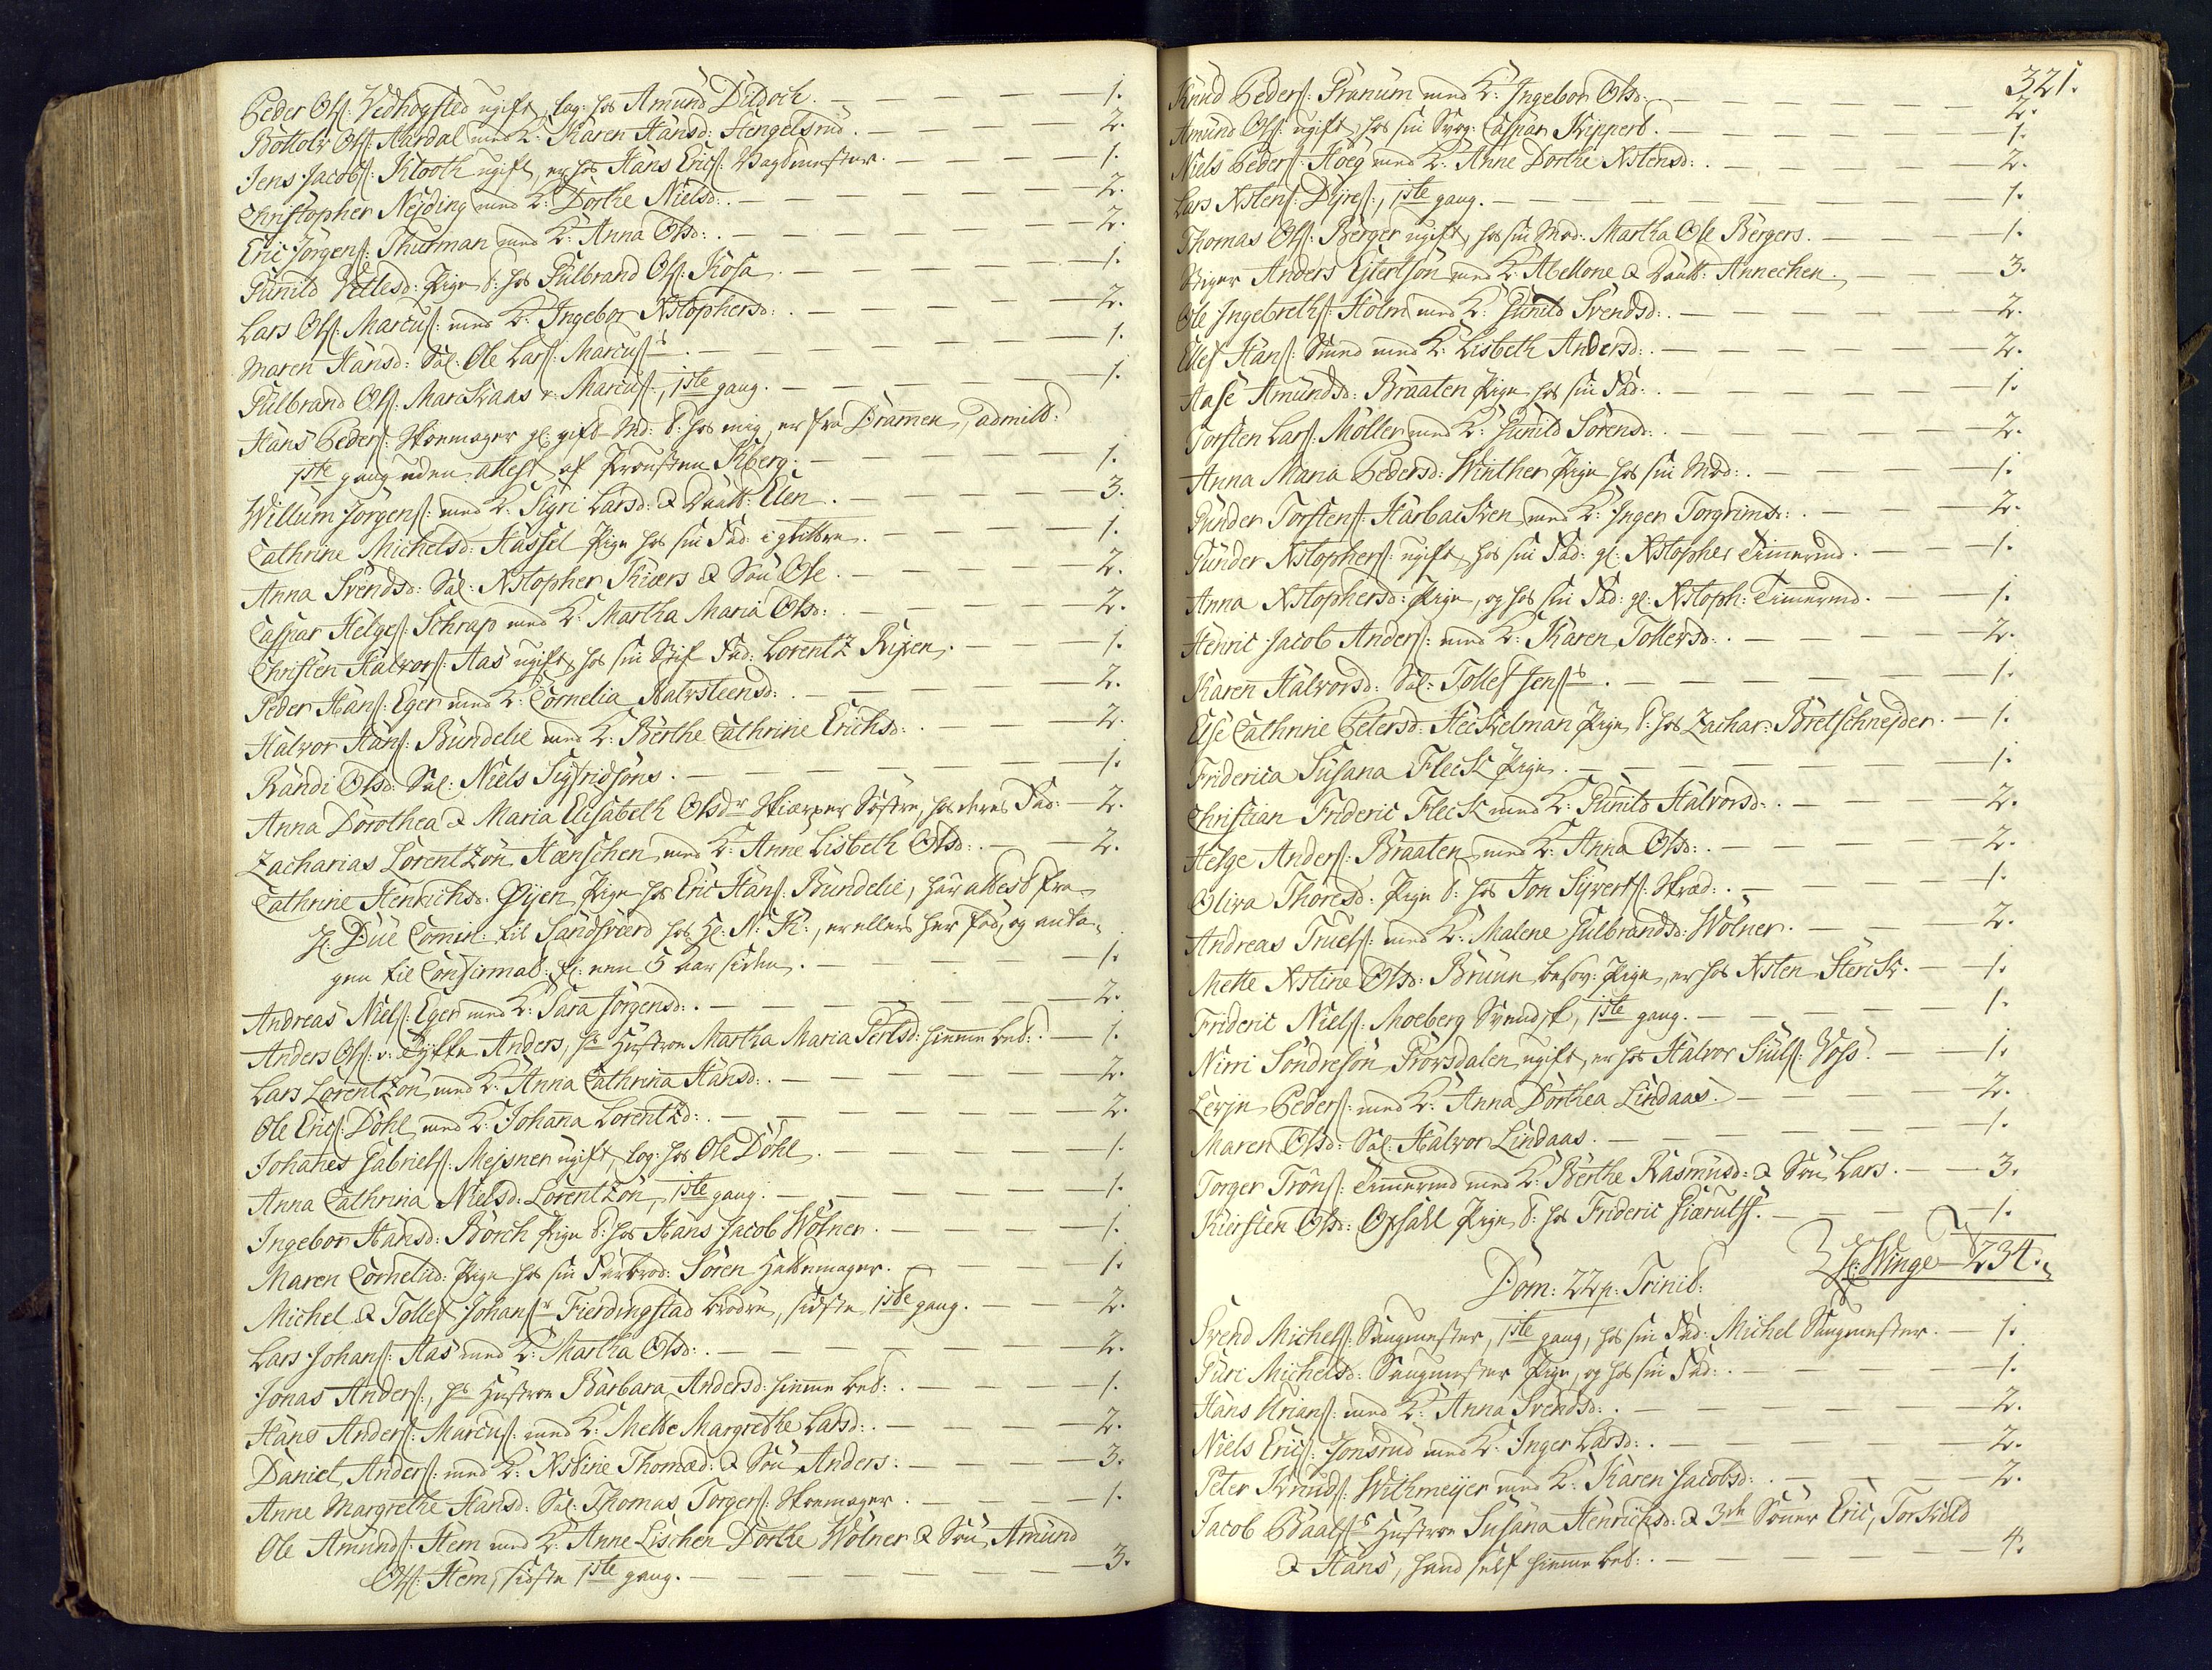 Peder Ols: Vedhogsted ugift, log: hos Amund Dildoch. — 1.
Bottolv Ols: Aardal med K: Karen Hansd: Hengelsrud. — 2.
Jens Jacobs: Klooth ugift, er hos Hans Erics: Vagtmester. — 1.
Christopher Nejding med K: Dorthe Nielsd: — 2.
Eric Jörgens: Thurman med K: Anna Olsd: — 2.
Gunild Vetlesd: Pige t: hos Gulbrand Ols: Kosa — 1.
Lars Ols: Marcus: med K: Ingebor Xstophersd: — 2.
Maren Hansd: Sal: Ole Lars: Marcus: — 1.
Gulbrand Ols: Markraas v. Marcus:, 1ste gang. — 1.
Hans Peders: Skoemager gl: gift Md: t: hos mig, er fra Dramen, admitt:
1ste gang uden attest af Provsten Kberg: — 1.
Willum Jörgens: med K: Sigri Larsd: & Daatt: Elen. — 3.
Cathrine Michelsd: Hassel Pige hos sin Fad: i glitten. — 1.
Anna Svendsd: Sal: Xstopher Skiærs & Sön Ole. — 2.
Caspar Helges: Schrap med K: Martha Maria Olsd: — 2.
Christen Halvors: Aas ugift, hos sin Stif Fad: Lorentz Rixen. — 1.
Peder Hans: Eger med K: Cornelia Halvsteensd: — 2.
Halvor Hans: Bundelie med K: Berthe Cathrine Erichsd: — 2.
Randi Olsd: Sal: Niels Sigfridsöns. — 1.
Anna Dorothea & Maria Elisabeth Olsdr Skiærper Söstre, hos deres Fad: — 2.
Zacharias Lorentzön Hænschen med K: Anne Lisbeth Olsd: — 2.
Cathrine Henrichsd: Öyen Pige hos Eric Hans: Bundelie, har attest fra
H: Düe Comin: til Sandsværd hos H: N: K:, er ellers her fød, og anta-
gen til Confirmat: for: 5 aar siden. — 1.
Andreas Niels: Eger med K: Sara Jörgensd: — 2.
Anders Ols: v: Tykke Anders, hs Hustroe Martha Maria Pertsd: hiemme bet: — 1.
Lars Lorentzön med K: Anna Cathrina Hansd: — 2.
Ole Erics: Döhl med K: Johana Lorentzd: — 2.
Johanes Gabriels: Mejsner ugift, log: hos Ole Döhl. — 1.
Anna Cathrina Nielsd: Lorentzön, 1ste gang. — 1.
Ingebor Hansd: Borch Pige t: hos Hans Jacob Wölner — 1.
Maren Cornelisd: Pige hos sin Farbrod: Sören Hattemager. — 1.
Michel & Tollef Johansr Fierdingstad Brödre, sidste 1ste gang. — 2.
Lars Johans: Aas med K: Martha Olsd: — 2.
Jonas Anders:, hs Hustroe Barbara Andersd: hiemme bet: — 1.
Hans Anders: Marcus: med K: Mette Margrethe Larsd: — 2.
Daniel Anders: med K: Kstine Thomæd: & Sön Anders: — 3.
Anne Margrethe Hansd: Sal: Thomas Torgers: Skoemager. — 1.
Ole Amunds: Hem med K: Anne Lischen Dorthe Wölner & Sön Amund
Ols: Hem, sidste 1ste gang. — 3.
321.
Knud Peders: Pranum med K: Ingebor Olsd: — 2.
Amund Ols: ugift, hos sin Svog: Caspar Kippert. — 1.
Niels Peders: Höeg med K: Anne Dorthe Xstensd: — 2.
Lars Xstens: Dyres:, 1ste gang. — 1.
Thomas Ols: Berger ugift, hos sin Mod: Martha Ole Bergers. — 1.
Stiger Anders Ejlertsön med K: Abellone & Daatt: Annechen. — 3.
Ole Ingebreths: Holm med K: Gunild Svendsd: — 2.
Elef Hans: Smed med K: Lisbeth Andersd: — 2.
Aase Amundsd: Braaten Pige hos sin Fad: — 1.
Torsten Lars: Möller med K: Gunild Sörensd: — 2.
Anna Maria Pedersd: Winther Pige hos sin Mod: — 1.
Gunder Torstens: Harbacken med K: Inger Torgrimsd: — 2.
Gunder Xstophers: ugift, hos sin Fad: gl: Xstopher Timermd. — 1.
Anna Xstophersd: Pige, og hos sin Fad: gl: Xstoph: Timermd. — 1.
Henric Jacob Anders: med K: Karen Tollersd: — 2.
Karen Halvorsd: Sal: Tollef Jens: — 1.
Else Cathrine Petersd: Heckelman Pige t: hos Zachar: Bretschnejder. — 1.
Friderica Susana Fleck Pige. — 1.
Christian Frideric Fleck med K: Gunild Halvorsd: — 2.
Helge Anders: Braaten med K: Anna Olsd: — 2.
Oliva Thoresd: Pige t: hos Jon Syverts: Skrad: — 1.
Andreas Truels: med K: Malene Gulbrandsd: Wölner. — 2.
Mette Xstine Olsd: Bruun besov: Pige, er hos Xsten Sterck. — 1.
Frideric Niels: Moeberg Svendsk, 1ste gang. — 1.
Nirri Söndresön Provsdalen ugift, er hos Halvor Siuls: Voss. — 1.
Levin Peders: med K: Anna Dorthea Lindaas. — 2.
Maren Olsd: Sal: Halvor Lindaas. — 1.
Torger Trons: Timermd med K: Berthe Rasmusd: & Sön Lars. — 3.
Kiersten Olsd: Opsahl Pige t: hos Frideric Giærulfs: — 1.
H: Winge 234.
Dom: 22 p: Trinit:
Svend Michels: Saugmester, 1ste gang, hos sin Fad: Michel Saugmester. — 1.
Guri Michelsd: Saugmester Pige, og hos sin Fad: — 1.
Hans Urians: med K: Anna Svendsd: — 2.
Niels Erics: Jonsrud med K: Inger Larsd: — 2.
Peter Knuds: Withmeyer med K: Karen Jacobsd: — 2.
Jacob Paals: Hustroe Susana Henrichsd: & 3de Sönner Eric, Torkild
& Hans, hand self hiemme bet: — 4.